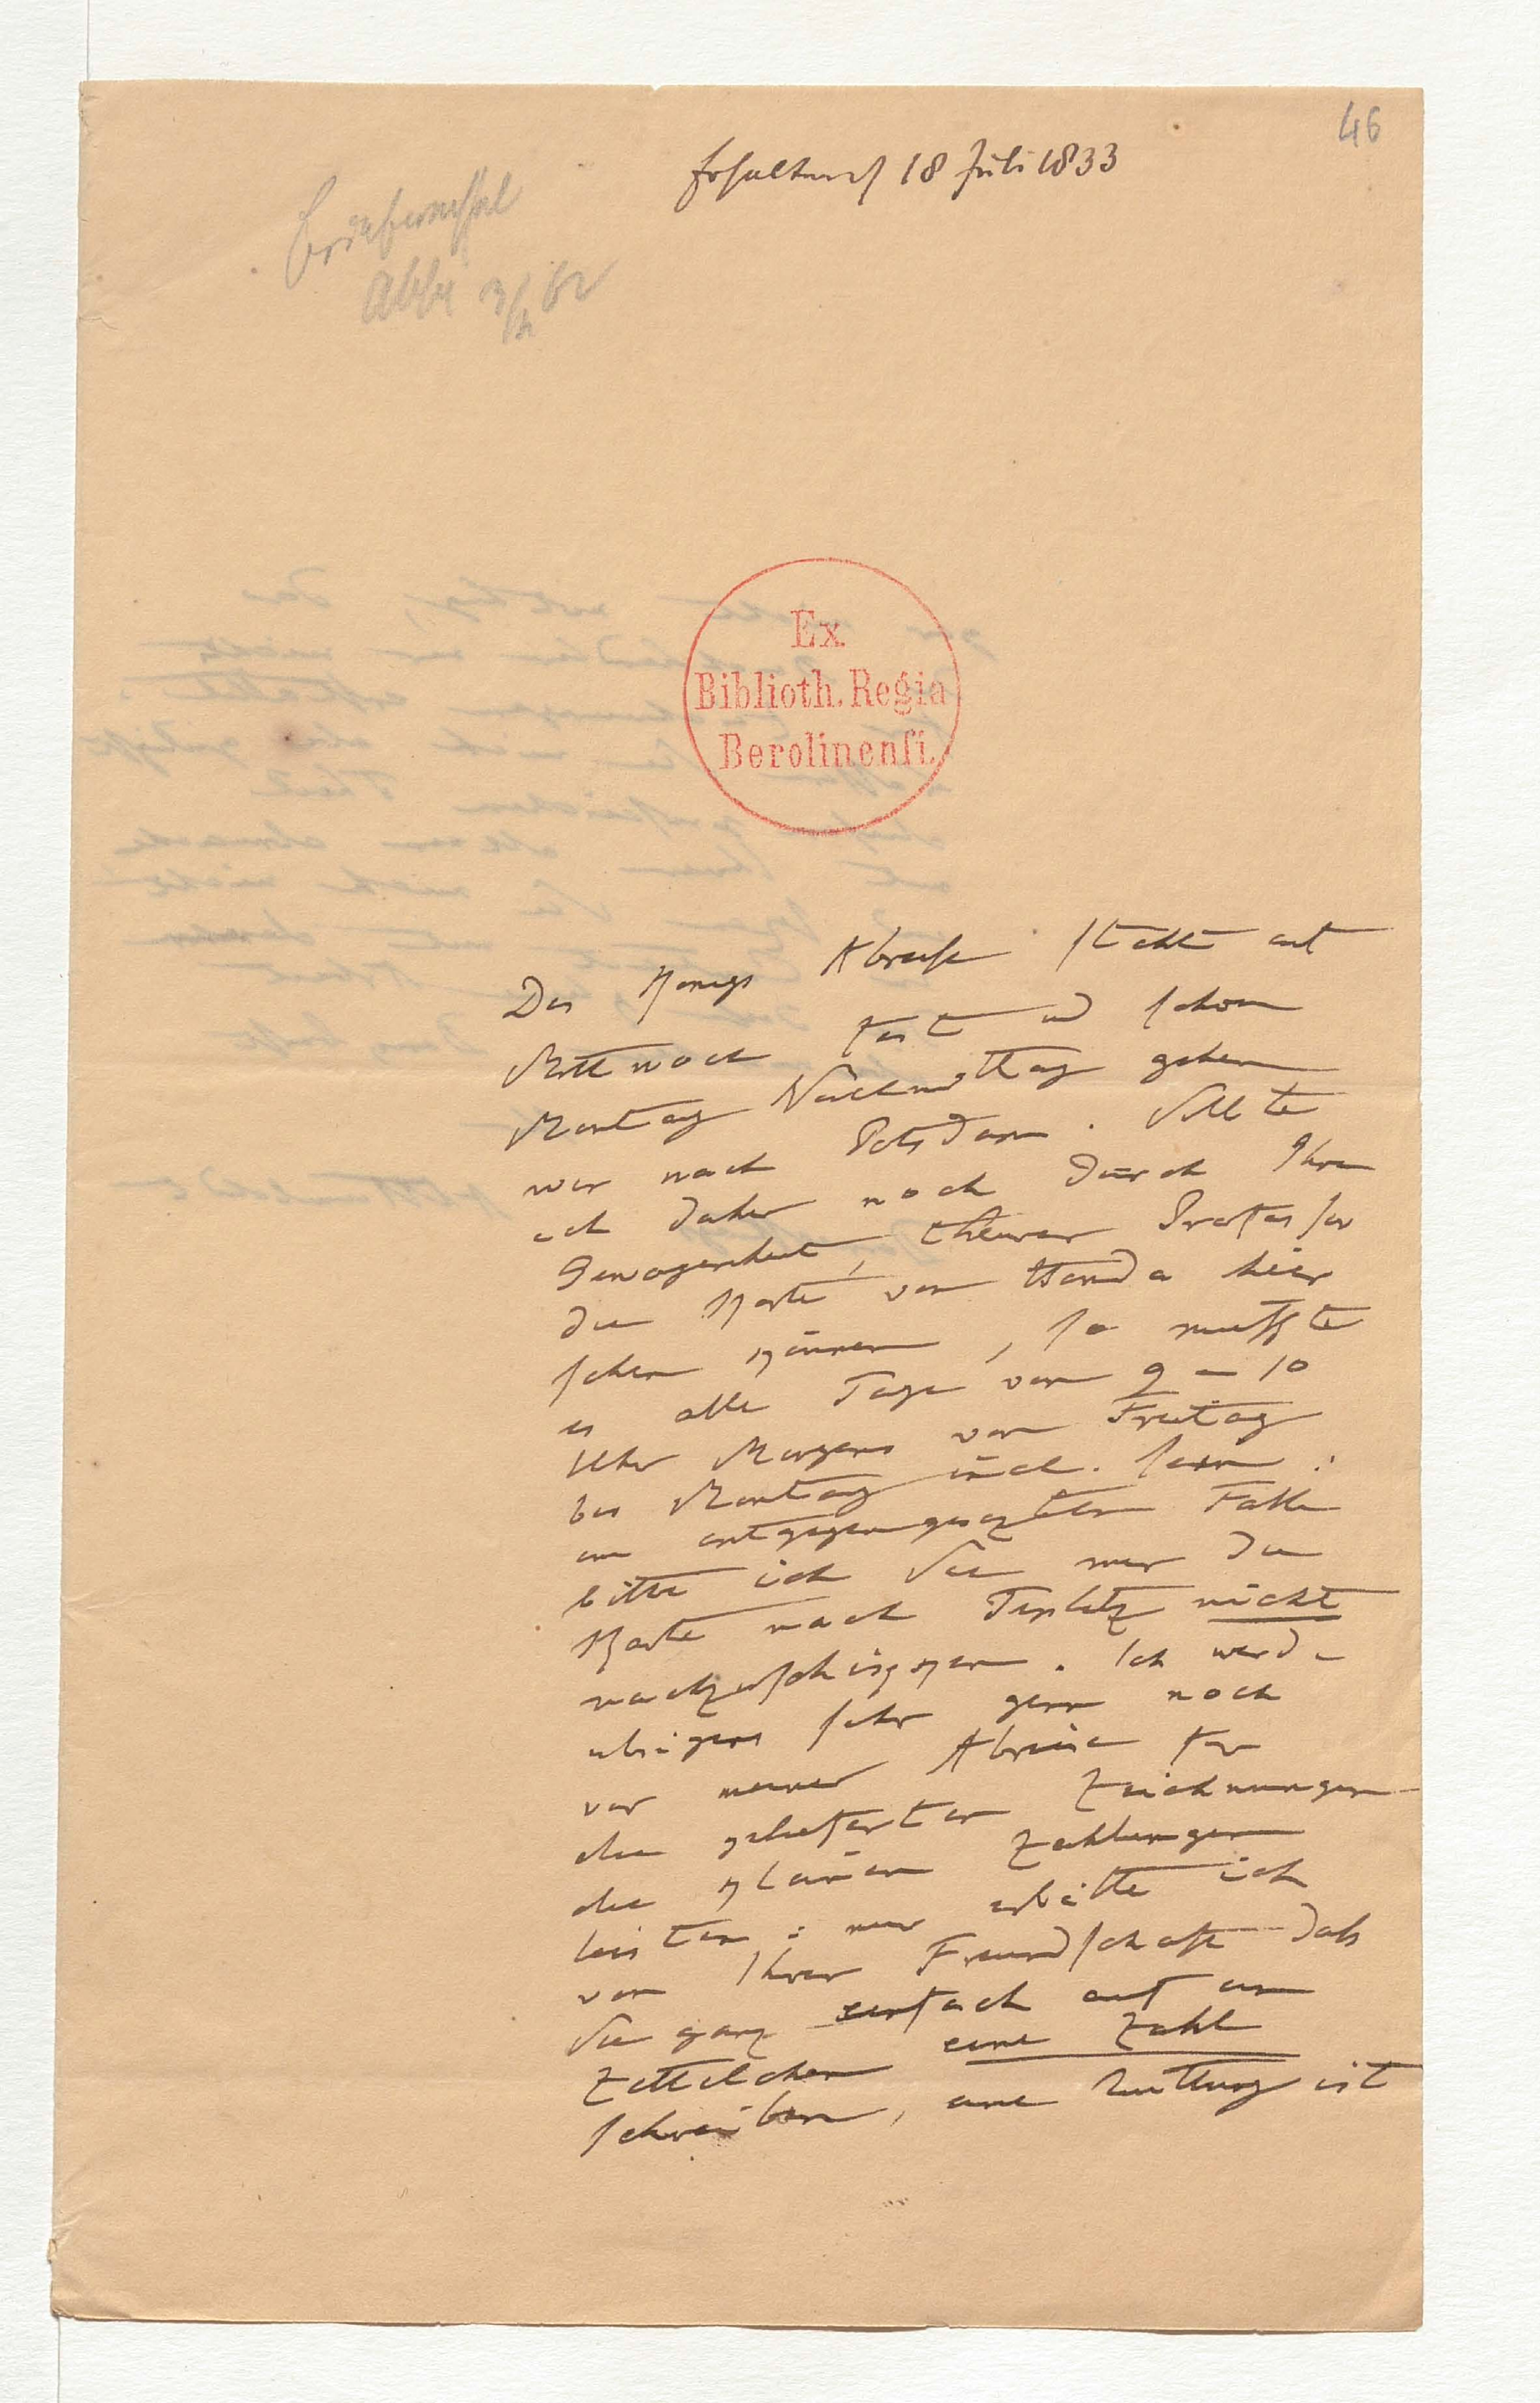 46
Erhalten d 18 Juli 1833
Briefwechsel
Ex.
Biblioth. Regia
Berolinensi.
Des Königs Abreise steht auf
Mittwoch fest und schon
Montag Nachmittag gehen
wir nach Potsdam. Sollte
ich daher noch durch Ihre
Gewogenheit, theurer Professor
die Karte von Honda hier
sehen können, so musste
es alle Tage von 9–10
Uhr Morgens von Freitag
bis Montag incl. sein:
im entgegengesezten Falle
bitte ich Sie mir die
Karte nach Teplitz nicht
nachzuschikken. Ich werde
übrigens sehr gern noch
vor meiner Abreise für
die gelieferten Zeichnungen
die kleinen Zahlungen
leisten: nur erbitte ich
von Ihrer Freundschaft dass
Sie ganz einfach auf ein
Zettelchen eine Zahl
schreiben, eine Quittung ist